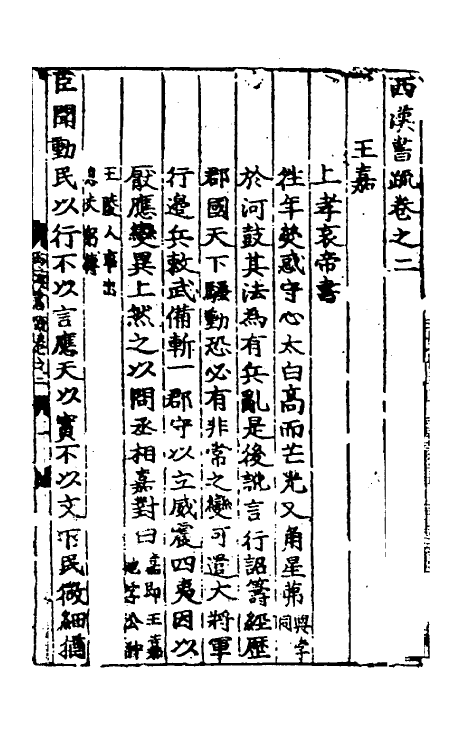 西漢書疏卷之二
王嘉
上孝哀帝書
往年熒惑守心太白高而芒光又角星茀與孛同
於河鼓其法為有兵亂是後訛言行詔籌經歷
郡國天下騷動恐必有非常之變可遣大將軍
行邊兵敕武備斬一郡守以立威震四夷因以
厭應變異上然之以問丞相嘉對曰嘉即王嘉
王陵人事出
息夫躬傳
臣聞動民以行不以言應天以實不以文下民微細猶